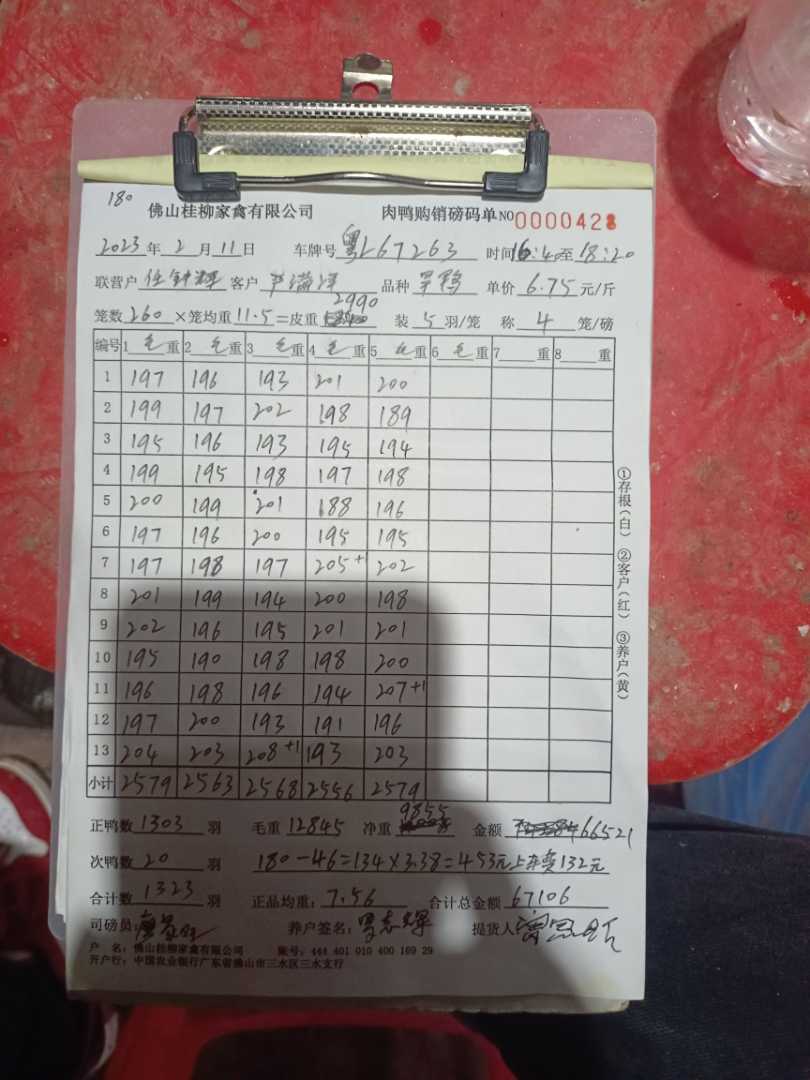 180
佛山桂柳家禽有限公司 肉鸭购销磅码单 NO 0000428
2023年2月11日 车牌号 粤L67263 时间16:40至18:20
联营户 伍钟辉 客户 品种 旱鸭 单价 6.75 元/斤
笼数 260 ×笼均重 11.5 =皮重 2990 装 5 羽/笼 称 4 笼/磅
编号 1 毛 重 2 毛 重 3 毛 重 4 毛 重 5 毛 重 6 毛 重 7 重 8 重
1 197 196 193 201 200
2 199 197 202 198 189
3 195 196 193 195 194
4 199 195 198 197 198
5 200 199 201 188 196
6 197 196 200 195 195
7 197 198 197 205+1 202
8 201 199 194 200 198
9 202 196 195 201 201
10 195 190 198 198 200
11 196 198 196 194 207+1
12 197 200 193 191 196
13 204 203 208+1 193 203
小计 2579 2563 2568 2556 2579
①存根(白) ②客户(红) ③养户(黄)
正鸭数 1303 羽 毛重 12845 净重 9855 金额 66521
次鸭数 20 羽 180-46=134×3.38=453元上车费132元
合计数 1323 羽 正品均重: 7.56 合计总金额 67106
司磅员: 养户签名: 提货人:
户 名: 佛山桂柳家禽有限公司 账号: 444 401 010 400 169 29
开户行: 中国农业银行广东省佛山市三水区三水支行